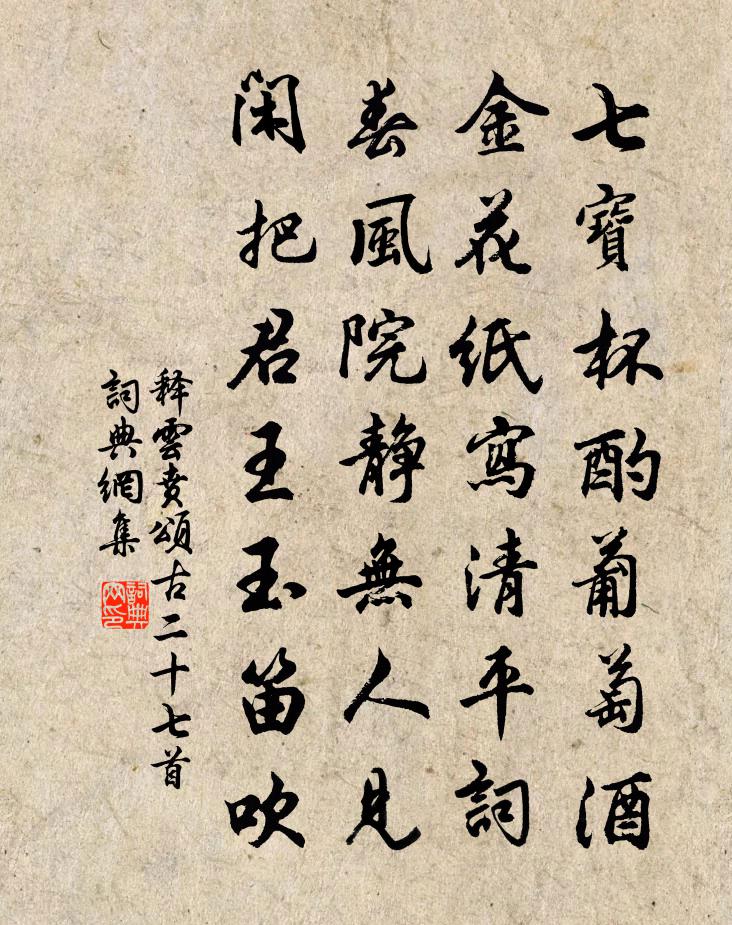 七寶杯酌葡萄酒
金花紙寫清平詞
春風院靜無人見
閑把君王玉笛吹
释雲賁頌古二十七首
詞典網集
詞典网印